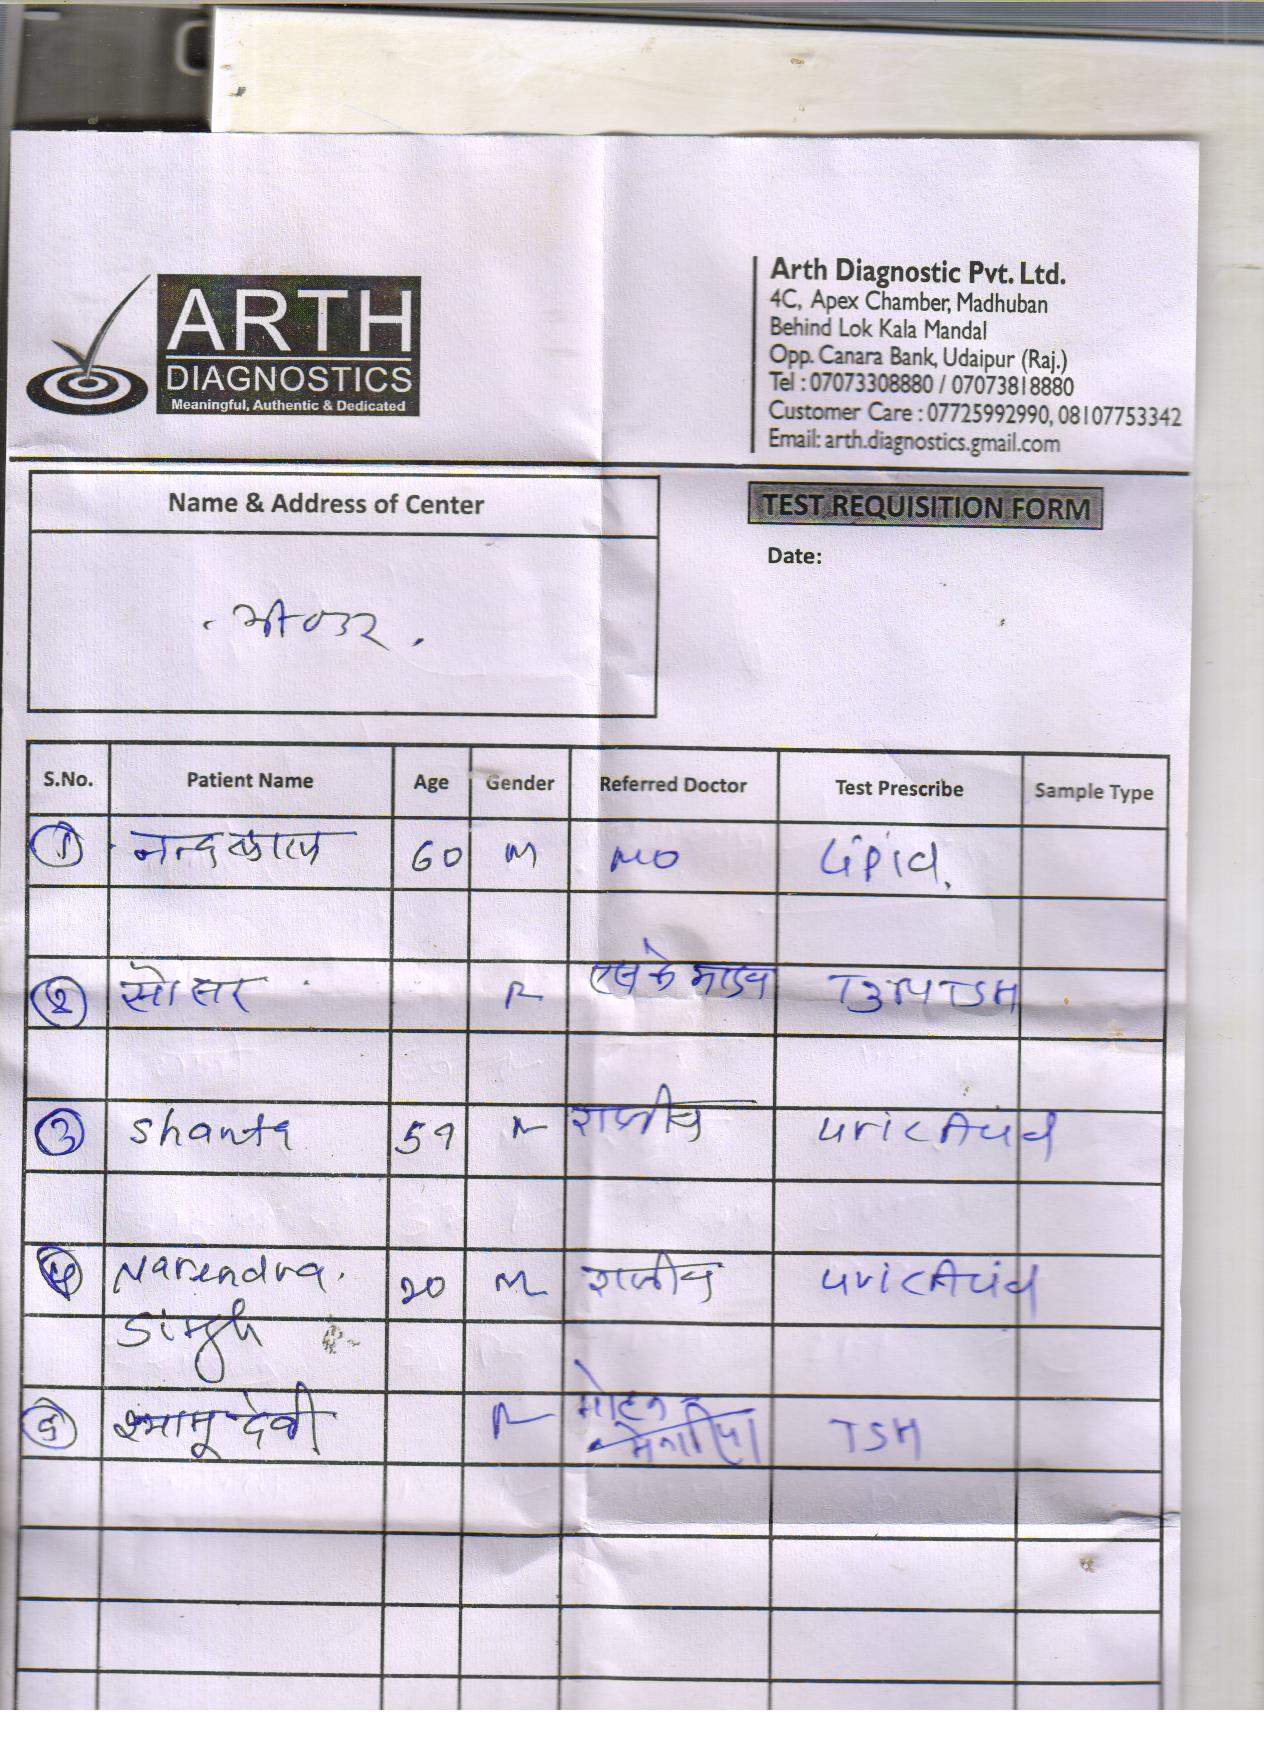 ARTH
DIAGNOSTICS
Meaningful, Authentic & Dedicated
Arth Diagnostic Pvt. Ltd.
4C, Apex Chamber, Madhuban
Behind Lok Kala Mandal
Opp. Canara Bank, Udaipur (Raj.)
Tel : 07073308880 / 07073818880
Customer Care : 07725992990, 08107753342
Email: arth.diagnostics.gmail.com
Name & Address of Center
TEST REQUISITION FORM
Date:
S.No. Patient Name Age Gender Referred Doctor Test Prescribe Sample Type
1 60 M MO Lipid.
2 T3T4TSH
3 Shanta 59 राजीव uric Acid
4 Narendra. 20 M राजीव uric Acid
Singh
5 देवी मोहन TSH